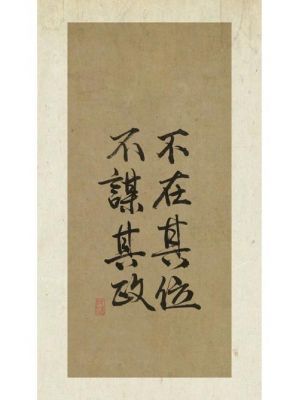 不在其位
不謀其政